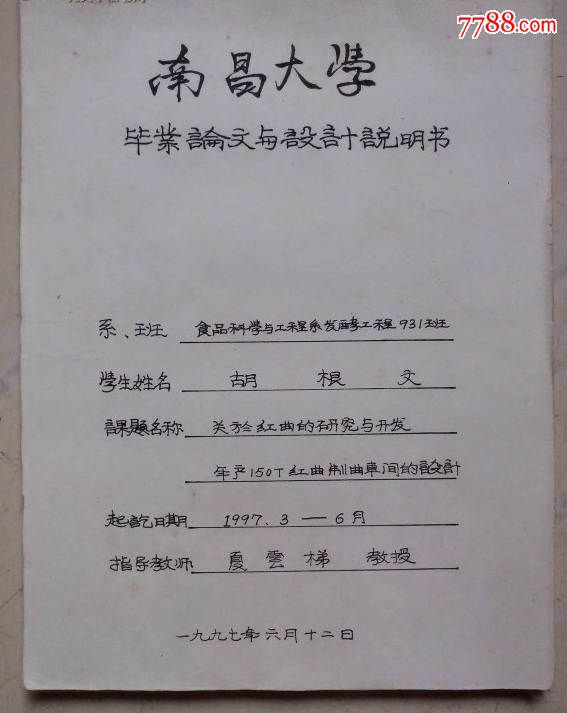 7788.com
南昌大學
毕業論文与設計說明书
系、班 食品科學与工程系发酵工程931班
學生姓名 胡根文
課題名称 关於红曲的研究与开发
年产150T红曲制曲車间的設計
起訖日期 1997.3—6月
指导教师 夏雲梯 教授
一九九七年六月十二日